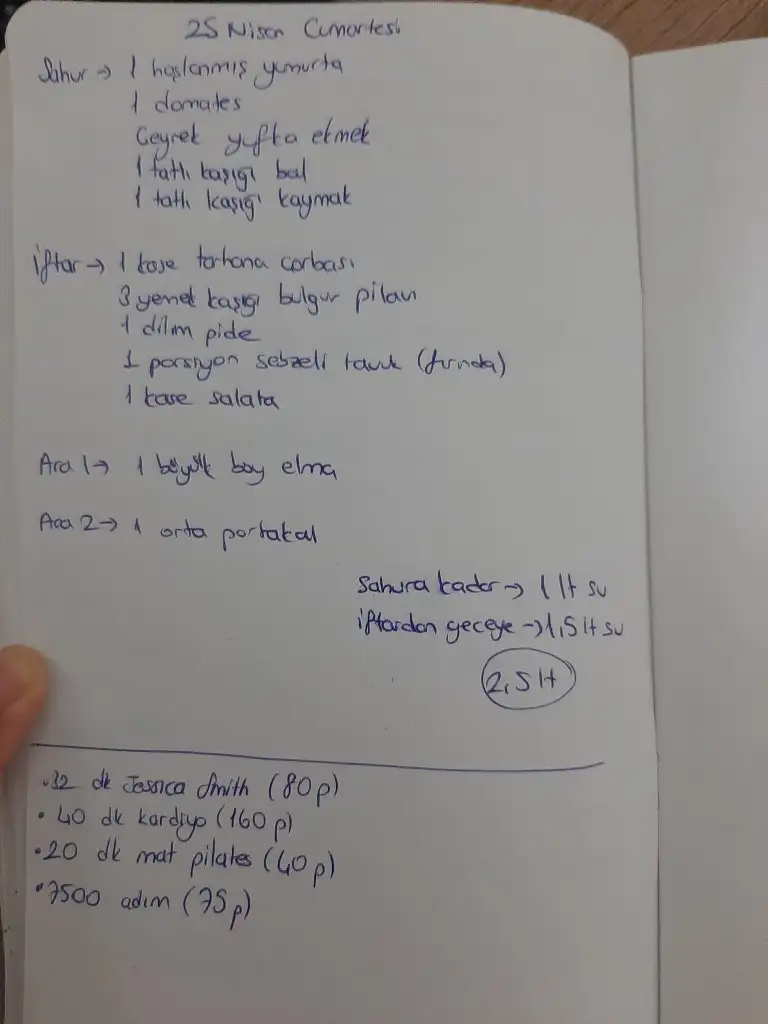 25 Nisan Cumartesi
Sahur → 1 haşlanmış yumurta
1 domates
Çeyrek yufka ekmek
1 tatlı kaşığı bal
1 tatlı kaşığı kaymak
iftar → 1 kase tarhana çorbası
3 yemek kaşığı bulgur pilavı
1 dilim pide
1 porsiyon sebzeli tavuk (fırında)
1 kase salata
Ara 1 → 1 büyük boy elma
Ara 2 → 1 orta portakal
Sahura kadar → 1 lt su
iftardan geceye → 1,5 lt su
2,5 lt
• 32 dk Jessica Smith (80 p)
• 40 dk kardiyo (160 p)
• 20 dk mat pilates (40 p)
• 7500 adım (75 p)